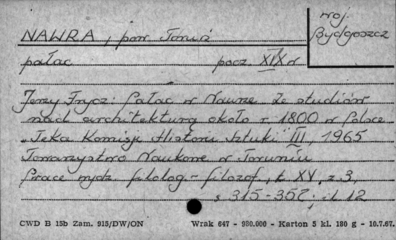 NAWRA, pow. Toruń
woj. Bydgoszcz
pałac pocz. XIX w
Jerzy Frycz: Pałac w Nawrze. Ze studiów
nad architekturą około r. 1800 w Polsce
"Teka Komisji Historii Sztuki" III, 1965
Towarzystwo Naukowe w Toruniu
Prace wydz. filolog.-filozof., t. XV, z. 3,
s 315-352, il. 12
CWD B 15b Zam. 915/DW/ON Wrak 647 - 980.000 - Karton 3 kl. 180 g - 10.7.67.